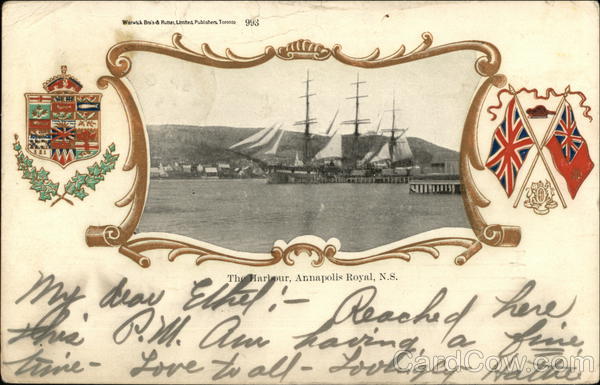 Warwick Bro's & Rutter, Limited, Publishers, Toronto 993
The Harbour, Annapolis Royal, N.S.
My dear Ethel!- Reached here
this P.M. Am having a fine
time- Love to all- Lovingly
CardCow.com